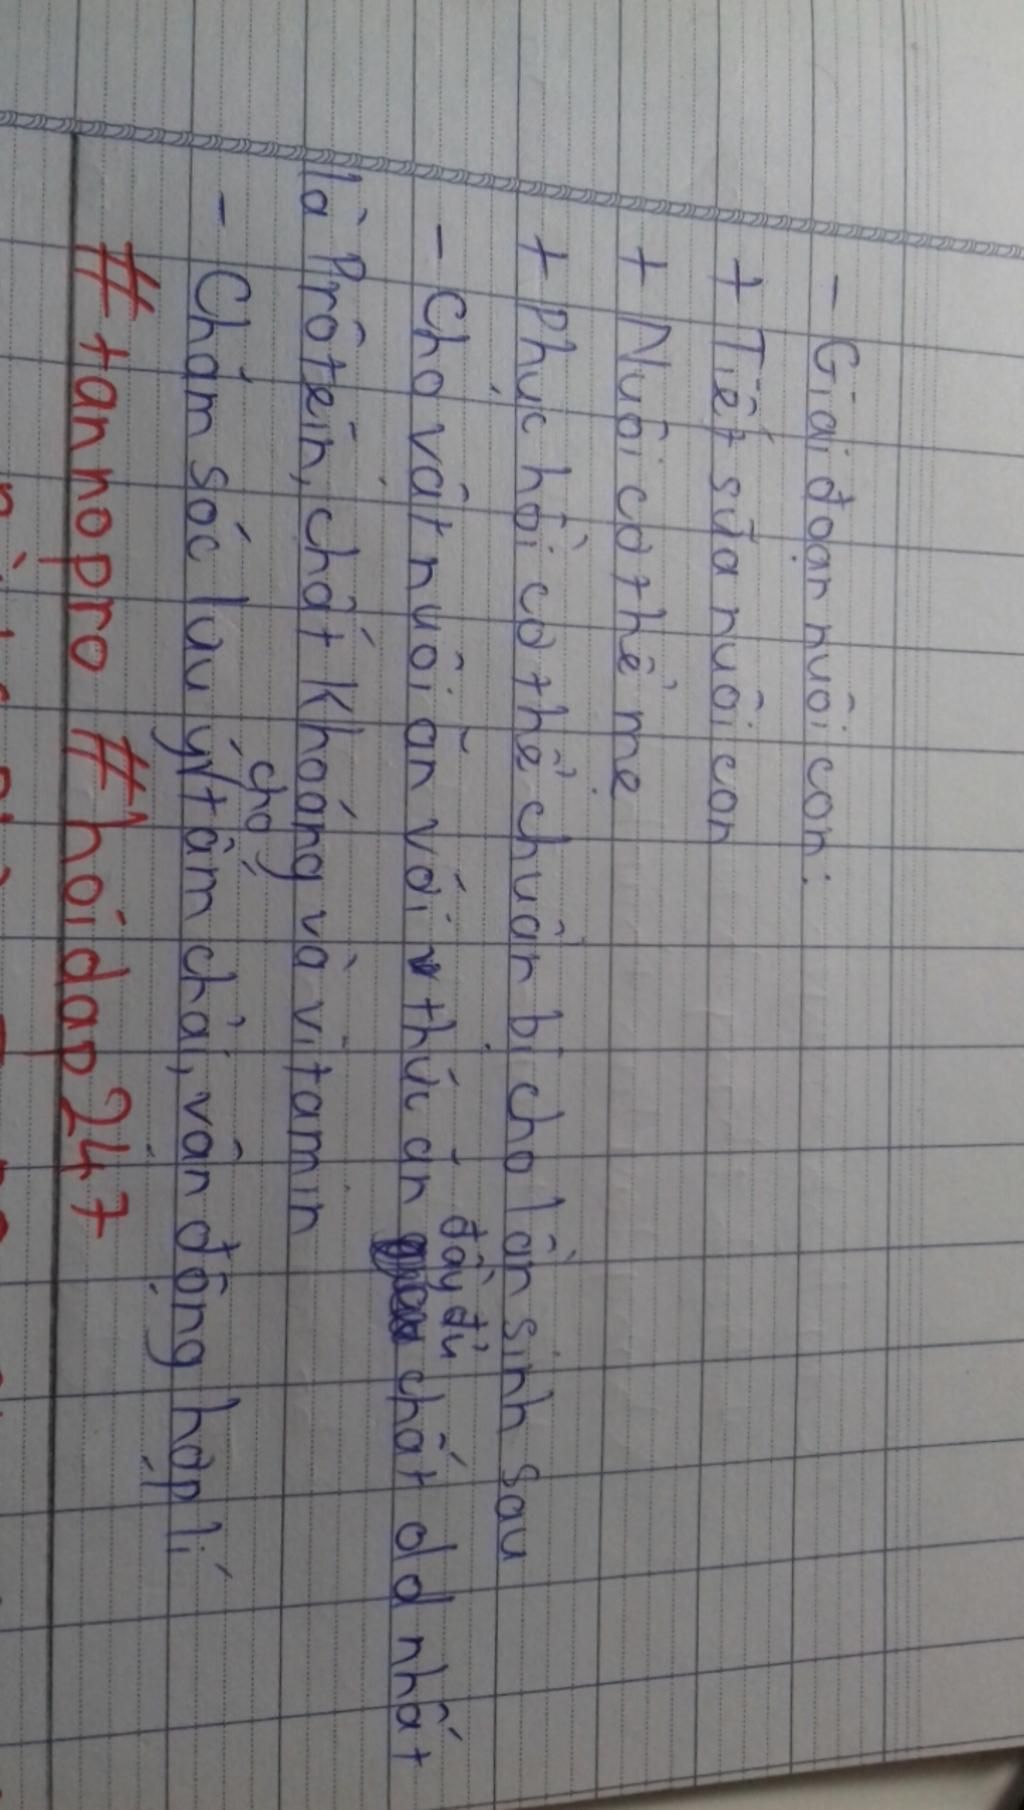 - Giai đoạn nuôi con:
+ Tiết sữa nuôi con
+ Nuôi cơ thể mẹ
+ Phục hồi cơ thể chuẩn bị cho lần sinh sau
- Cho vật nuôi ăn với thức ăn đầy đủ chất dd nhất
là Prôtêin, chất khoáng và vitamin
- Chăm sóc lưu ý cho tắm chải, vận động hợp lí
#tannopro #hoidap247